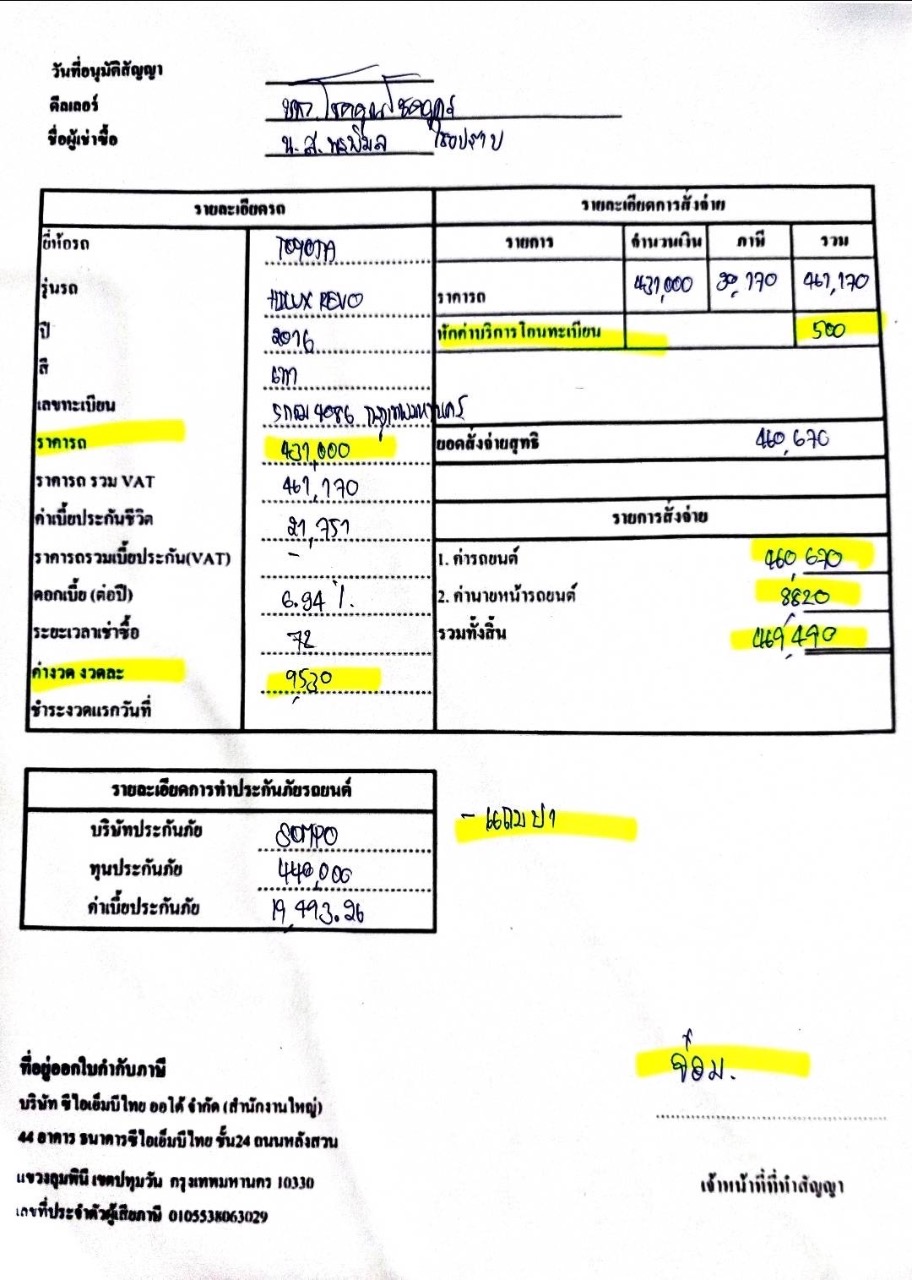 วันที่อนุมัติสัญญา
ดีลเลอร์
ชื่อผู้เช่าซื้อ น.ส. พรพิมล
รายละเอียดรถ
ยี่ห้อรถ TOYOTA
รุ่นรถ HILUX REVO
ปี 2016
สี เทา
เลขทะเบียน 4086 กรุงเทพมหานคร
ราคารถ 431,000
ราคารถ รวม VAT 461,170
ค่าเบี้ยประกันชีวิต 21,751
ราคารถรวมเบี้ยประกัน(VAT) -
ดอกเบี้ย (ต่อปี) 6.94 %
ระยะเวลาเช่าซื้อ 72
ค่างวด งวดละ 9,530
ชำระงวดแรกวันที่
รายละเอียดการสั่งจ่าย
รายการ จำนวนเงิน ภาษี รวม
ราคารถ 431,000 30,170 461,170
หักค่าบริการโอนทะเบียน 500
ยอดสั่งจ่ายสุทธิ 460,670
รายการสั่งจ่าย
1. ค่ารถยนต์ 460,670
2. ค่านายหน้ารถยนต์ 8,820
รวมทั้งสิ้น 469,490
รายละเอียดการทำประกันภัยรถยนต์
บริษัทประกันภัย SOMPO
ทุนประกันภัย 440,000
ค่าเบี้ยประกันภัย 19,493.26
- แถมป1
ที่อยู่ออกใบกำกับภาษี
บริษัท ซีไอเอ็มบีไทย ออโต้ จำกัด (สำนักงานใหญ่)
44 อาคาร ธนาคารซีไอเอ็มบีไทย ชั้น24 ถนนหลังสวน
แขวงลุมพินี เขตปทุมวัน กรุงเทพมหานคร 10330
เลขที่ประจำตัวผู้เสียภาษี 0105538063029
เจ้าหน้าที่ที่ทำสัญญา